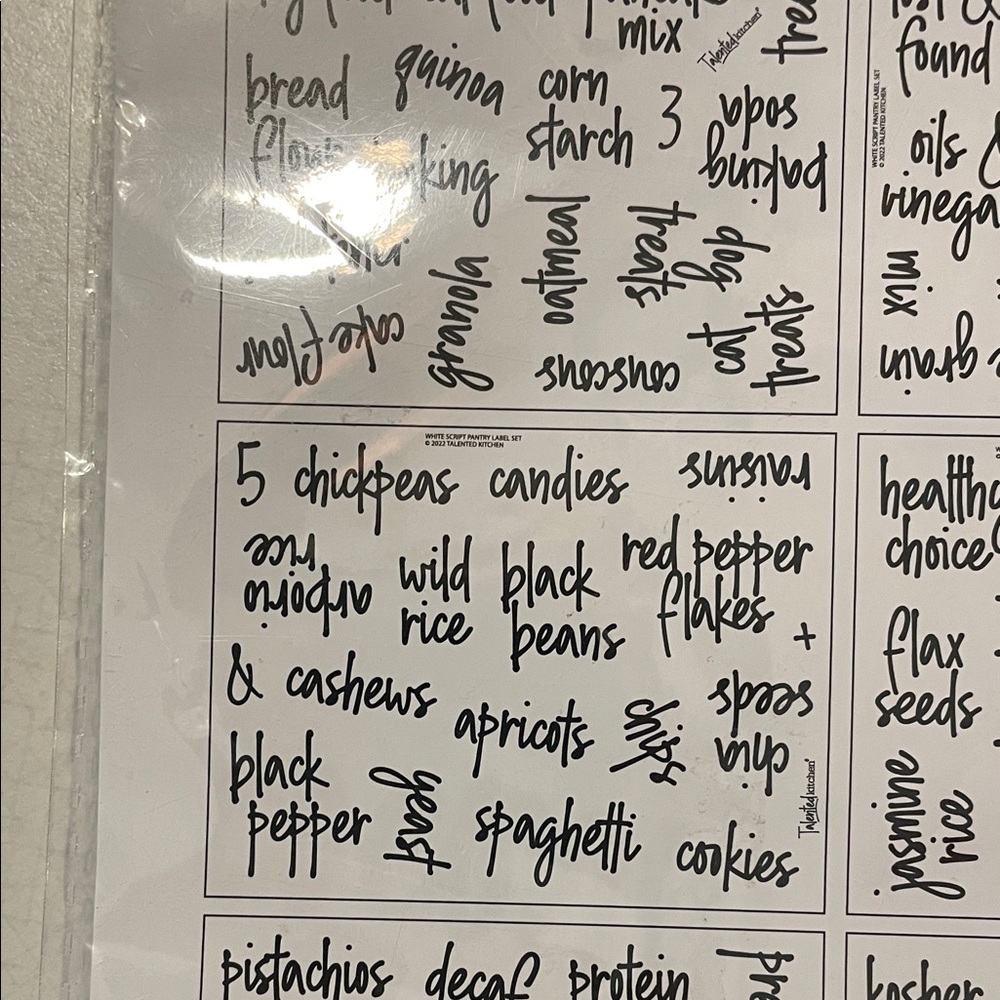 mix
Talented kitchen
bread
flour
quinoa
corn
starch
3
baking
soda
granola
oatmeal
dog
treats
cake flour
couscous
cat
treats
found
WHITE SCRIPT PANTRY LABEL SET
© 2022 TALENTED KITCHEN
oils
mix
grain
WHITE SCRIPT PANTRY LABEL SET
© 2022 TALENTED KITCHEN
5 chickpeas candies raisins
arborio
rice
wild
rice
black
beans
red pepper
flakes
+
& cashews
apricots
chips
chia
seeds
black
pepper
yeast
spaghetti
cookies
Talented kitchen
healthy
choice
flax
seeds
jasmine
rice
pistachios decaf protein
kosher